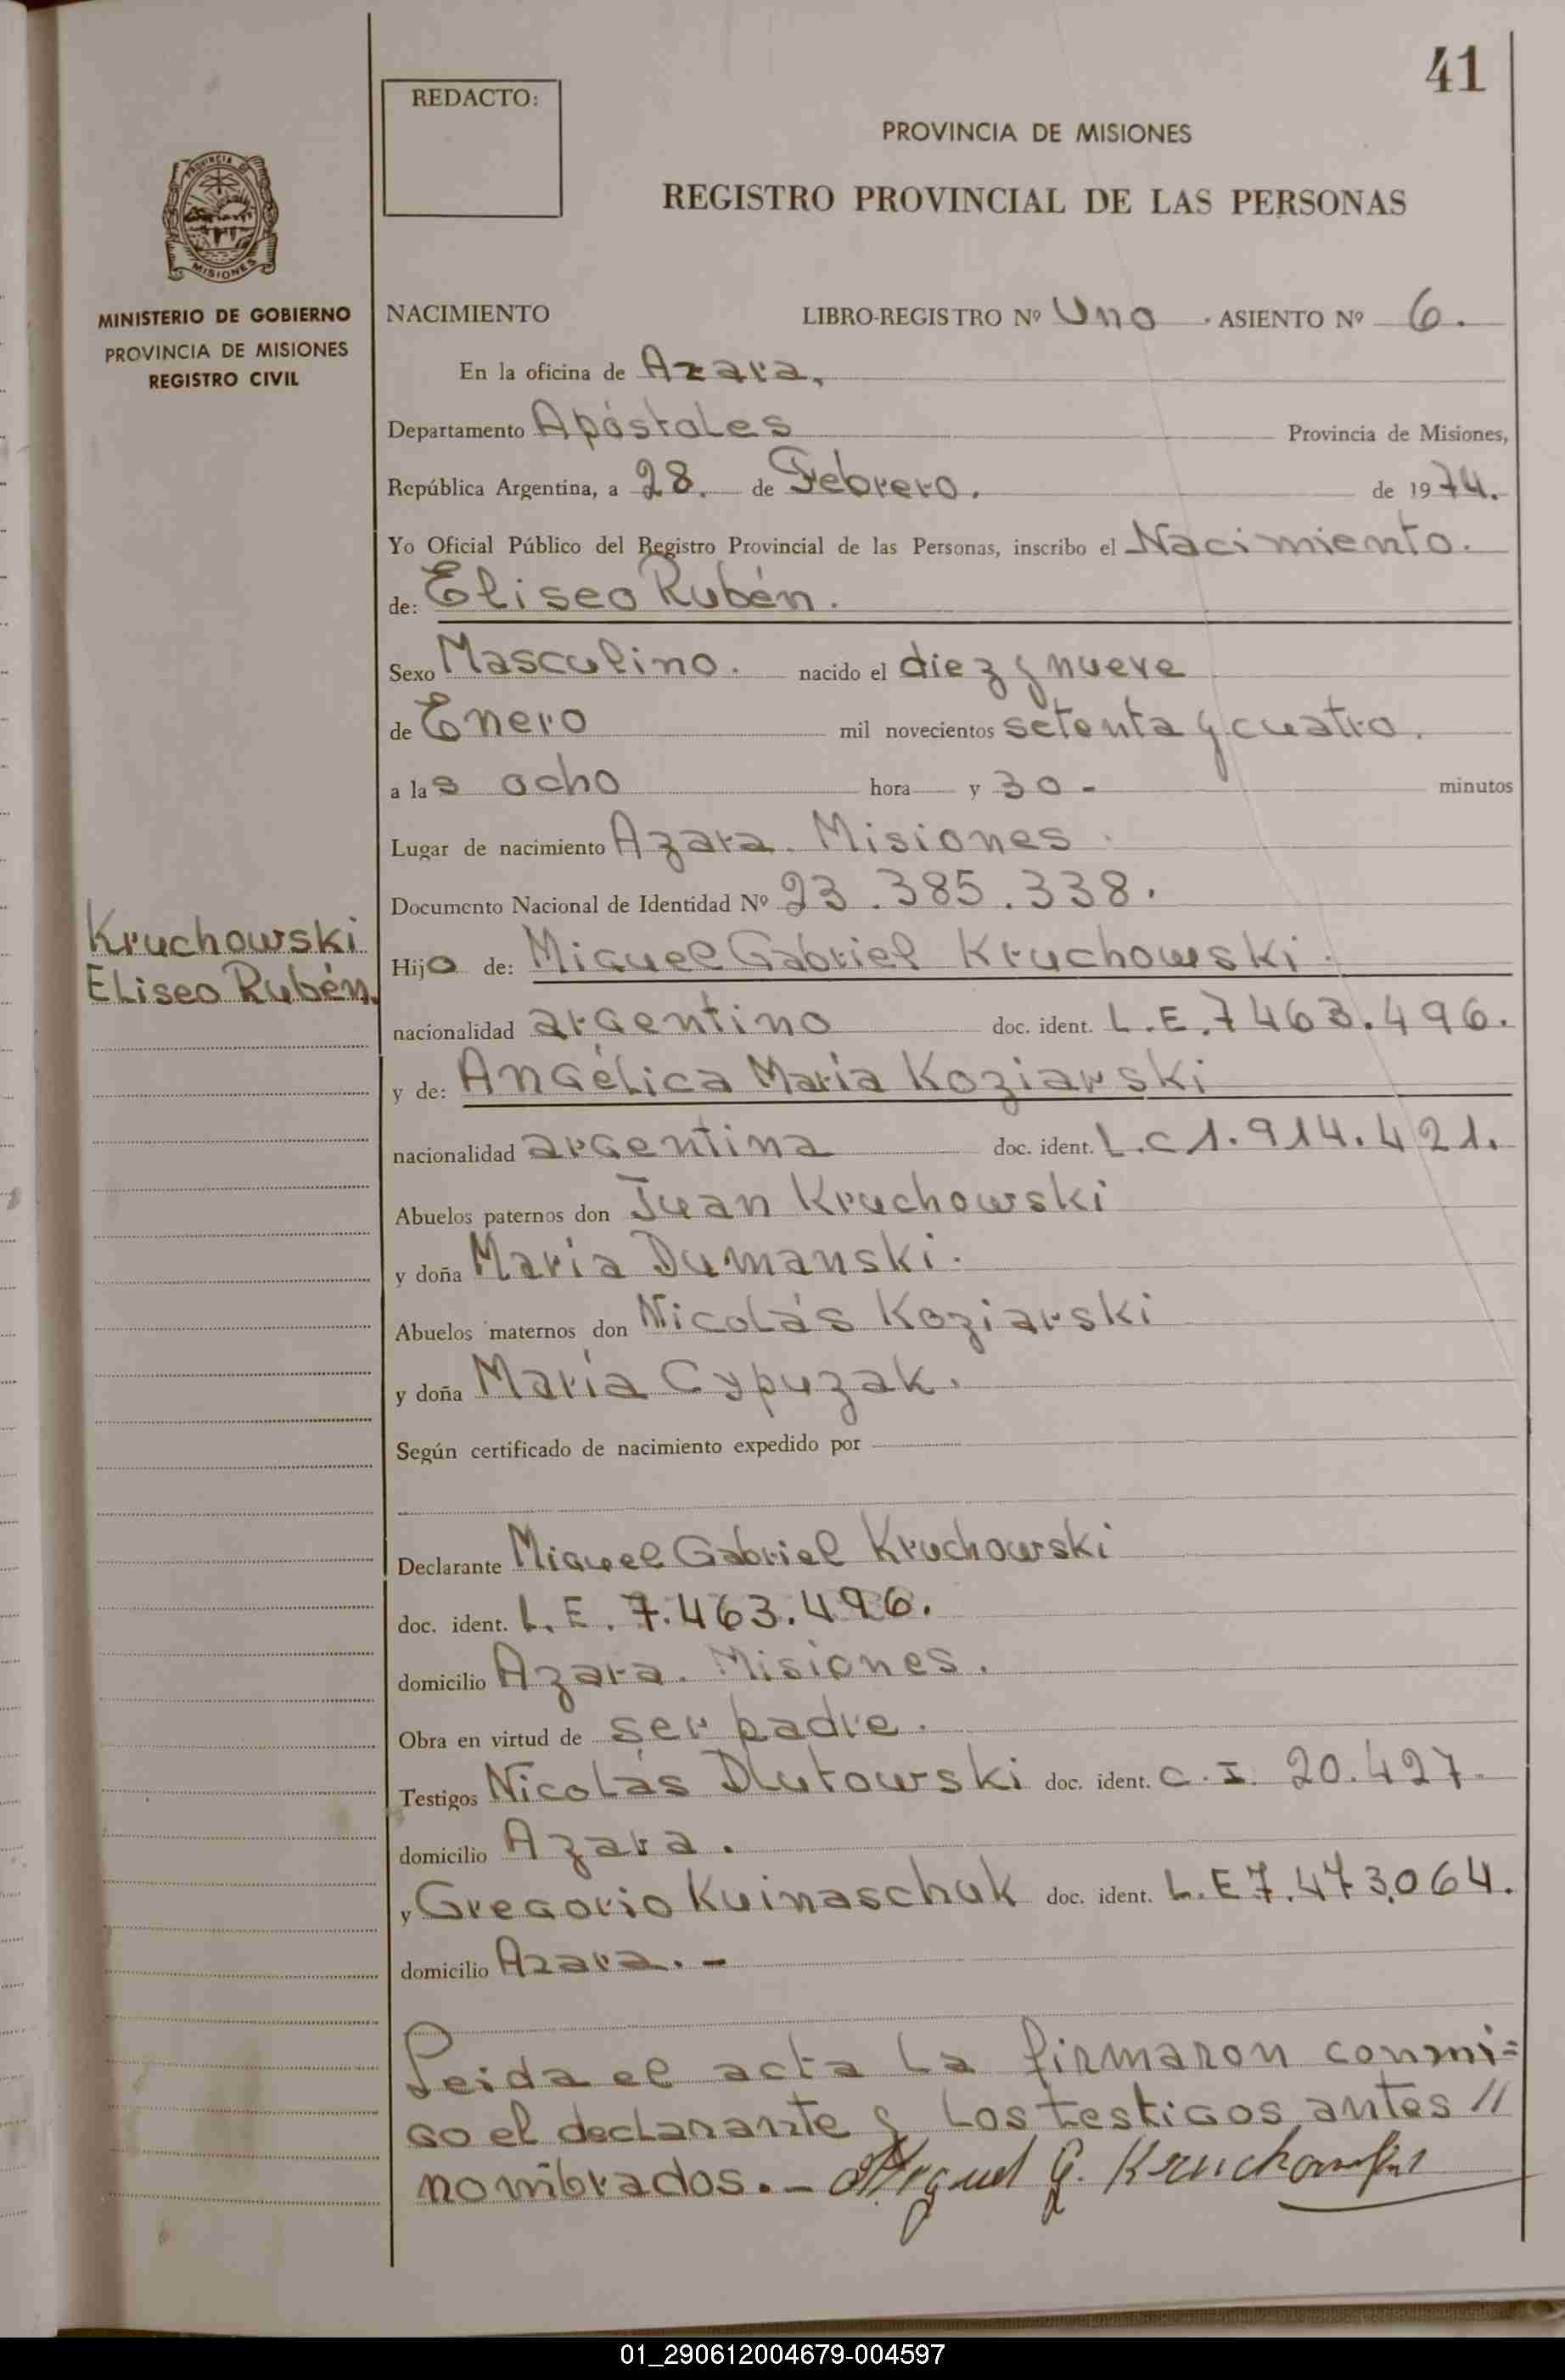 41
REDACTO:
PROVINCIA DE MISIONES
REGISTRO PROVINCIAL DE LAS PERSONAS
PROVINCIA DE
MISIONES
MINISTERIO DE GOBIERNO
PROVINCIA DE MISIONES
REGISTRO CIVIL
NACIMIENTO LIBRO-REGISTRO Nº Uno . ASIENTO Nº 6.
En la oficina de Azara,
Departamento Apóstoles Provincia de Misiones,
República Argentina, a 28. de Febrero. de 1974.
Yo Oficial Público del Registro Provincial de las Personas, inscribo el Nacimiento.
de: Eliseo Rubén.
Sexo Masculino. nacido el diez y nueve
de Enero mil novecientos setenta y cuatro.
a las ocho hora y 30 - minutos
Lugar de nacimiento Azara. Misiones.
Documento Nacional de Identidad Nº 23.385.338.
Kruchowski
Eliseo Rubén.
Hijo de: Miguel Gabriel Kruchowski.
nacionalidad argentino doc. ident. L.E.7463.496.
y de: Angélica María Koziarski
nacionalidad argentina doc. ident. L.C 1.914.421.
Abuelos paternos don Juan Kruchowski
y doña María Dumanski.
Abuelos maternos don Nicolás Koziarski
y doña María Cypuzak.
Según certificado de nacimiento expedido por
Declarante Miguel Gabriel Kruchowski
doc. ident. L.E. 7.463.496.
domicilio Azara. Misiones.
Obra en virtud de ser padre.
Testigos Nicolás Dlutowski doc. ident. C.I. 20.427.
domicilio Azara.
y Gregorio Kuinaschuk doc. ident. L.E 7.473.064.
domicilio Azara. -
Leida el acta la firmaron conmi=
go el declarante y los testigos antes //
nombrados. - Miguel G. Kruchowski
01_290612004679-004597